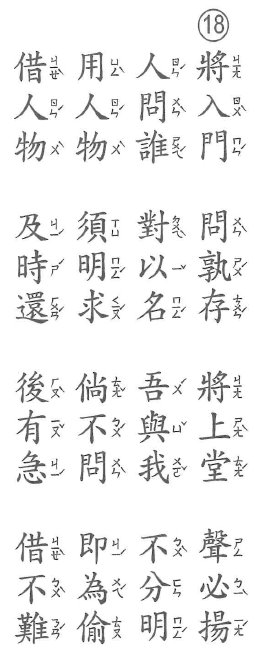 18
將入門 問孰存 將上堂 聲必揚
人問誰 對以名 吾與我 不分明
用人物 須明求 倘不問 即為偷
借人物 及時還 後有急 借不難